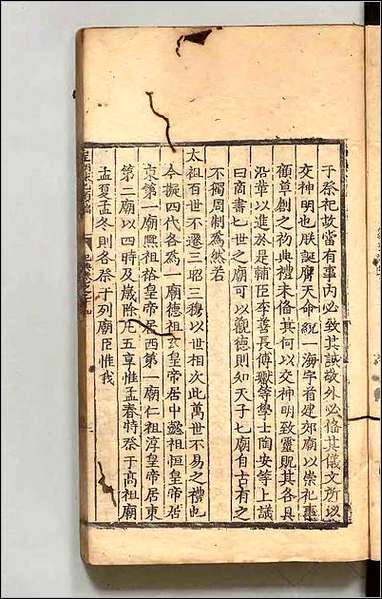 子祭祀故當有事內必致其誠敬外必脩其儀文所以
交神明也朕誕膺天命統一海宇首建郊廟以崇祀事
顧草創之初典禮未脩其何以交神明致靈貺其各具
沿革以進於是輔臣李善長傅瓛等學士陶安等上議
曰商書七世之廟可以觀德則知天子七廟自古有之
不獨周制為然若
太祖百世不遷三昭三穆以世相次此萬世不易之禮也
今擬四代各為一廟德祖玄皇帝居中懿祖恒皇帝居
東第一廟熙祖裕皇帝居西第一廟仁祖淳皇帝居東
第二廟以四時及歲除凡五享惟孟春特祭于高祖廟
孟夏孟冬則各祭于列廟臣惟我